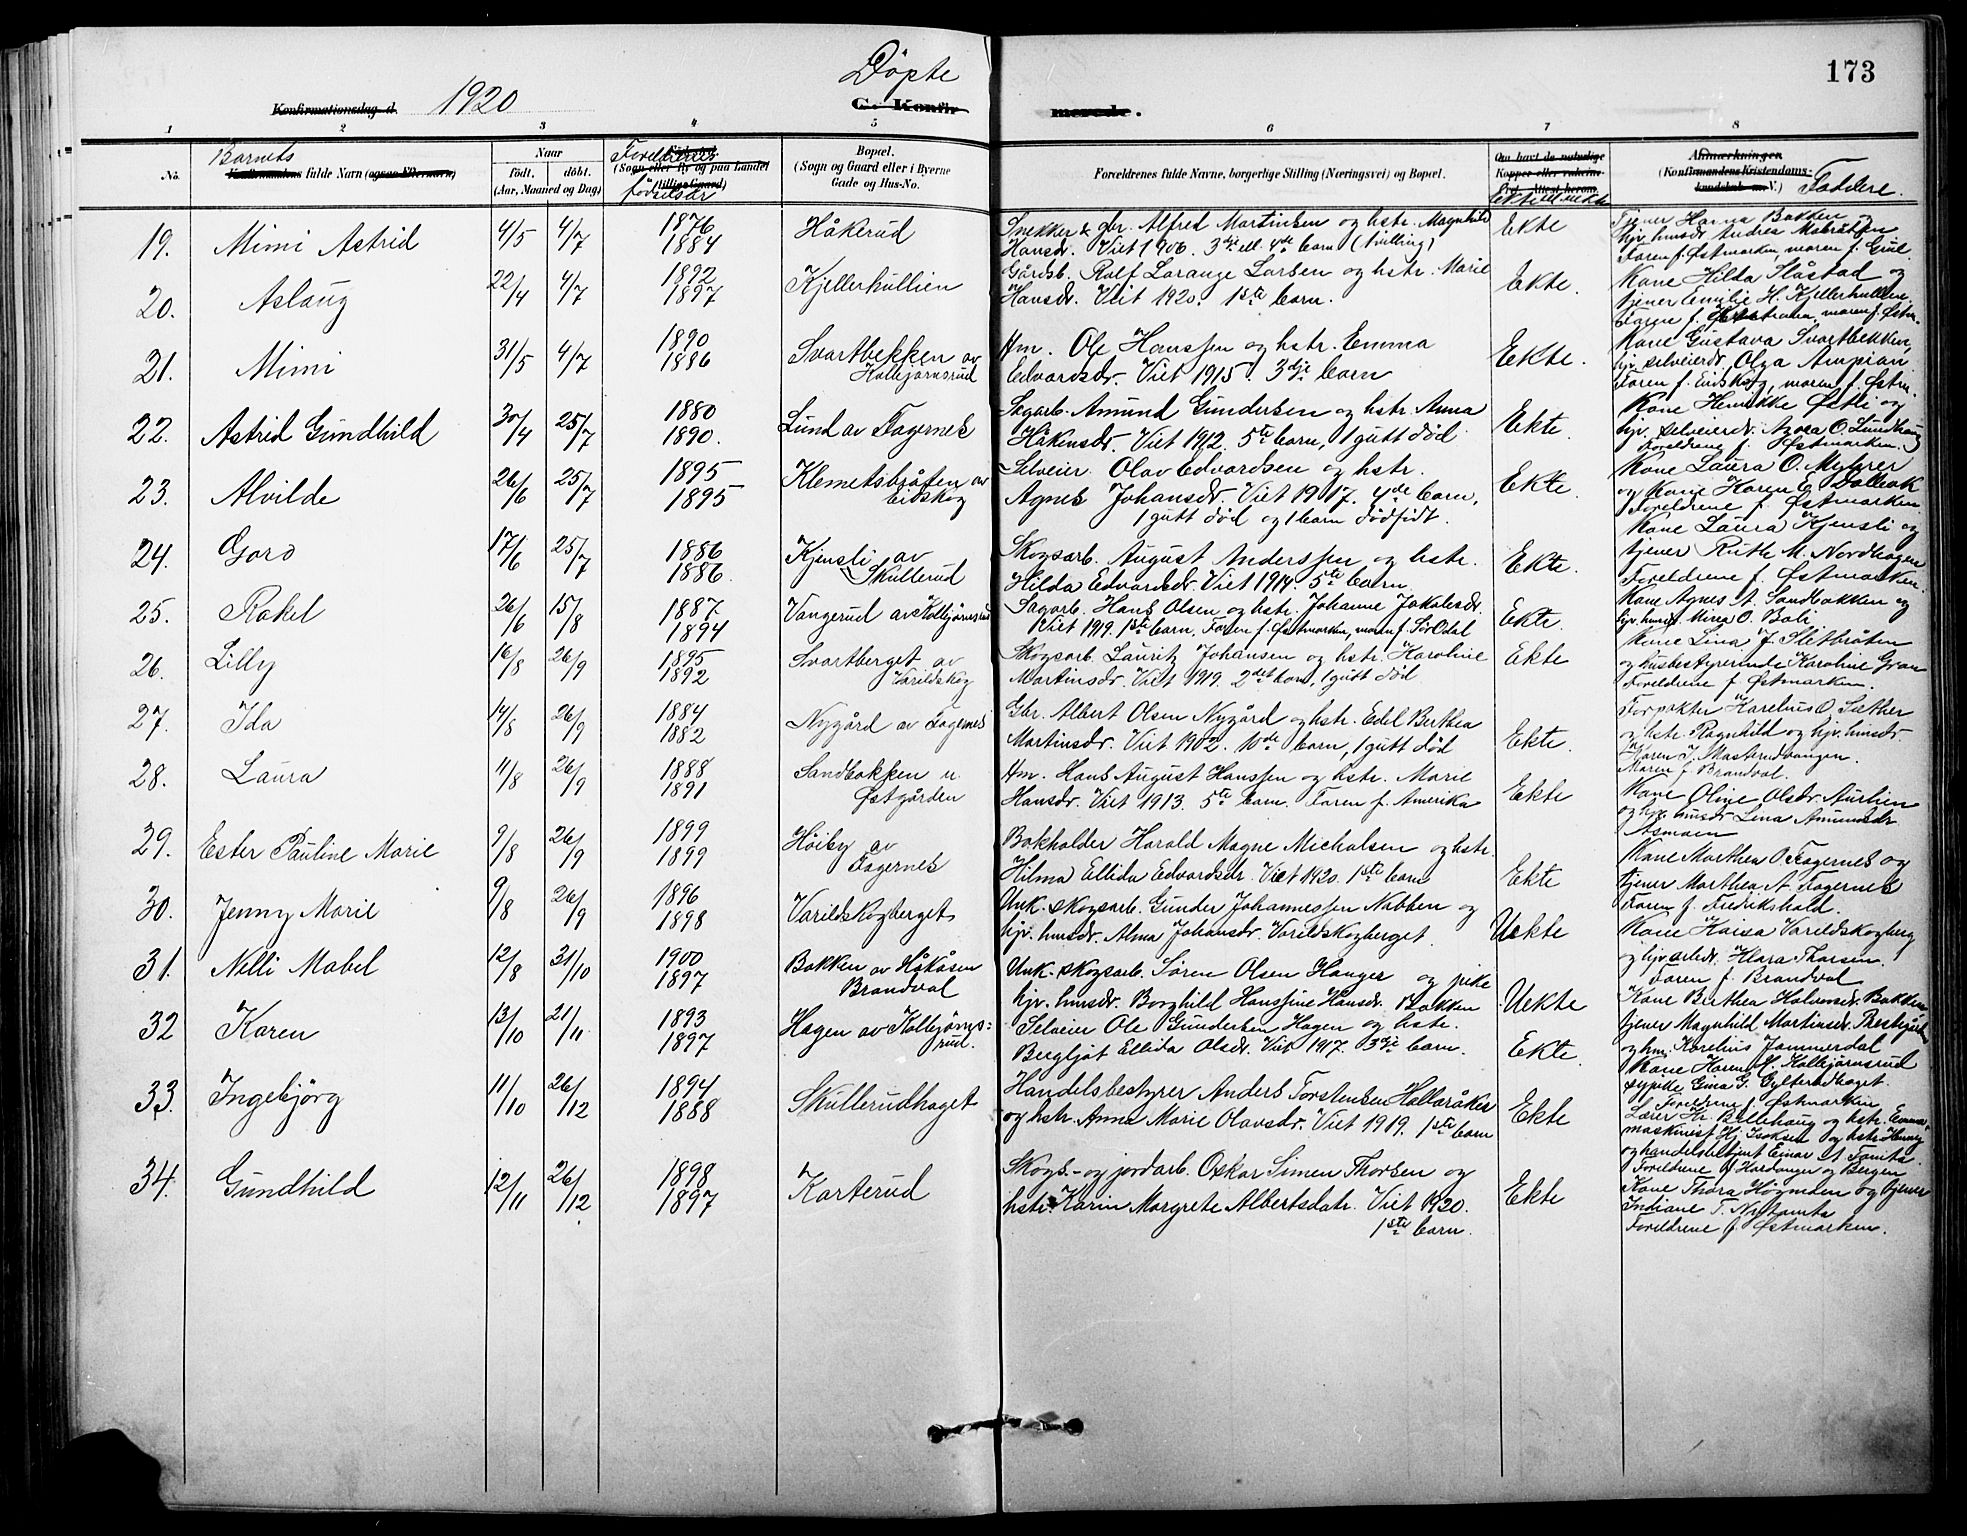 173
Döpte
Konfirmationsdag d. 1920
C. Konfirmerede.
1 2 3 4 5 6 7 8
No.
Barnets
Konfirmandens fulde Navn (ogsaa Efternavn)
Naar
födt. döbt.
(Aar, Maaned og Dag)
Foreldrenes
(Sogn eller By og paa Landet tillige Gaard)
födselsår
Bopæl.
(Sogn og Gaard eller i Byerne
Gade og Hus-No.
Forældrenes fulde Navne, borgerlige Stilling (Næringsvei) og Bopæl.
Om havt de naturlige
Kopper eller vaksine-
ret. Attest herom.
Anmærkninger
(Konfirmandens Kristendoms-
kundskab m. V.)
Faddere.
19. Mimi Astrid 4/5 4/7 1876 1884 Håkerud
Snekker & gbr. Alfred Martinsen og hstr. Magnhild
Hansdr. Viet 1906. 3dje ell. 4de barn (tvilling)
Ekte
Tjener Hanna Bakken
Faren f. Østmarken, moren f. Grue.
20. Aslaug 22/4 4/7 1892 1897 Kjellerhullien
Gårdsb. Rolf Lorange Larsen og hstr. Marie
Hansdr. Viet 1920. 1ste barn.
Ekte.
Kone Hilda Slåstad og
tjener Emilie H. Kjellerhullien.
21. Mimi 31/5 4/7 1890 1886 Svartbekken av
Kolbjørnsrud
Hm. Ole Hanssen og hstr. Emma
Edvardsdr. Viet 1915. 3dje barn
Ekte.
Kone Gustava Svartbekken,
hjv. selveierdr. Olga
Faren f. Eidskog, moren f. Østm.
22. Astrid Gundhild 30/4 25/7 1880 1890. Lund av Fagernes
Sagarb. Amund Gundersen og hstr. Anna
Håkensdr. Viet 1912. 5te barn, 1 gutt död
Ekte.
Kone Henrikke Østli og
hjv. selveierdr. O. Lundhaug
Foreldrene f. Østmarken.
23. Alvilde 26/6 25/7 1895 1895 Klemetsbråten av
Eidskog
Selveier Olav Edvardsen og hstr.
Agnes Johansdr. Viet 1917. 4de barn,
1 gutt död og 1 barn dödfödt.
Ekte.
Kone Laura O. Myhrer
og Kone Karen E. Dalbak
Foreldrene f. Østmarken
24. Goro 17/6 25/7 1886 1886. Kjensli av
Skullerud
Skogsarb. August Anderssen og hstr.
Hilda Edvardsdr. Viet 1914. 5te barn
Ekte.
Kone Laura Kjensli og
tjener Ruth M. Nordhagen
Foreldrene f. Østmarken.
25. Rakel 26/6 15/8 1887 1894 Vangerud av Kolbjørnsrud
Sagarb. Hans Olsen og hstr. Johanne Jakobsdr.
Viet 1919. 1ste barn. Faren f. Østmarken, moren f. Sør Odal
Ekte.
Kone Agnes A. Sandbakken og
hjv. husdr. Mina O. Boli
26. Lilly 16/8 26/9 1895 1892 Svartberget av
Varildskog
Skogsarb. Lauritz Johansen og hstr. Karoline
Martinsdr. Viet 1919. 2det barn, 1 gutt död
Ekte
Kone Lina J. Slitbråten
og husbestyrerinde Karoline Gran
Foreldrene f. Østmarken.
27. Ida 14/8 26/9 1884 1882 Nygård av Fagernes
Gbr. Albert Olsen Nygård og hstr. Edel Berthea
Martinsdr. Viet 1902. 10de barn, 1 gutt död
Ekte.
Forpakter Karelius O. Sæther
og hstr. Ragnhild og hjv. husdr.
Karen J. Masterudvangen.
Moren f. Brandval.
28. Laura 11/8 26/9 1888 1891 Sandbakken u.
Østgården
Hm. Hans August Hanssen og hstr. Marie
Hansdr. Viet 1913. 5te barn. Faren f. Amerika
Ekte
Kone Oline Olsdr. Aurlien
og hjv. husdr. Lina Amundsdr
Asmoen
29. Ester Pauline Marie 9/8 26/9 1899 1899 Höiby av
Fagernes
Bokholder Harald Magne Michalsen og hstr.
Hilma Ellida Edvardsdr. Viet 1920. 1ste barn
Ekte
Kone Marthea O. Fagernes og
tjener Marthea A. Fagernes
Faren f. Fredrikshald.
30. Jenny Marie 9/8 26/9 1896 1898 Varildskogberget
Unk. skogsarb. Gunder Johannessen Nabben og
hjv. husdr. Alma Johansdr. Varildskogberget.
Uekte
Kone Kaisa Varildskogberg
og hjv. arbdr. Klara Thorsen.
Faren f. Brandval
31. Nelli Mabel 12/8 31/10 1900 1897 Bakken av Håkåsen
Brandval
Unk. skogsarb. Sören Olsen Hanger og pike
hjv. husdr. Borghild Hanssine Hansdr. Bakken
Uekte
Kone Berthea Halvorsdr. Bakken
tjener Magnhild Martinsdr.
og hm. Karelius Jammerdal
32 Karen 13/10 21/11 1893 1897 Hagen av Kolbjørns=
rud.
Selveier Ole Gundersen Hagen og hstr.
Bergljot Ellida Olsdr. Viet 1917. 3dje barn.
Ekte.
Kone Karen H. Kolbjørnsrud
sypike Gina G. Gylterudhaget.
Foreldrene f. Østmarken
33. Ingebjörg 11/10 26/12 1894 1888 Skullerudhaget
Handelsbestyrer Anders Torstensen Hallaråker
og hstr. Anna Marie Olavsdr. Viet 1919. 1ste barn
Ekte
Lærer Kr. Ballehaug og hstr. Emma,
maskinist Hj. Isaksen og hstr. Henny
og handelsbetjent Einar A. Tomta.
Foreldrene f. Hardanger og Bergen
34. Gundhild 12/11 26/12 1898 1897 Karterud
Skogs- og jordarb. Oskar Simen Thorsen og
hstr. Karin Margrete Albertsdatr. Viet 1920.
1ste barn.
Ekte
Kone Thora og tjener
Indiane T. Nystomta
Foreldrene f. Østmarken.